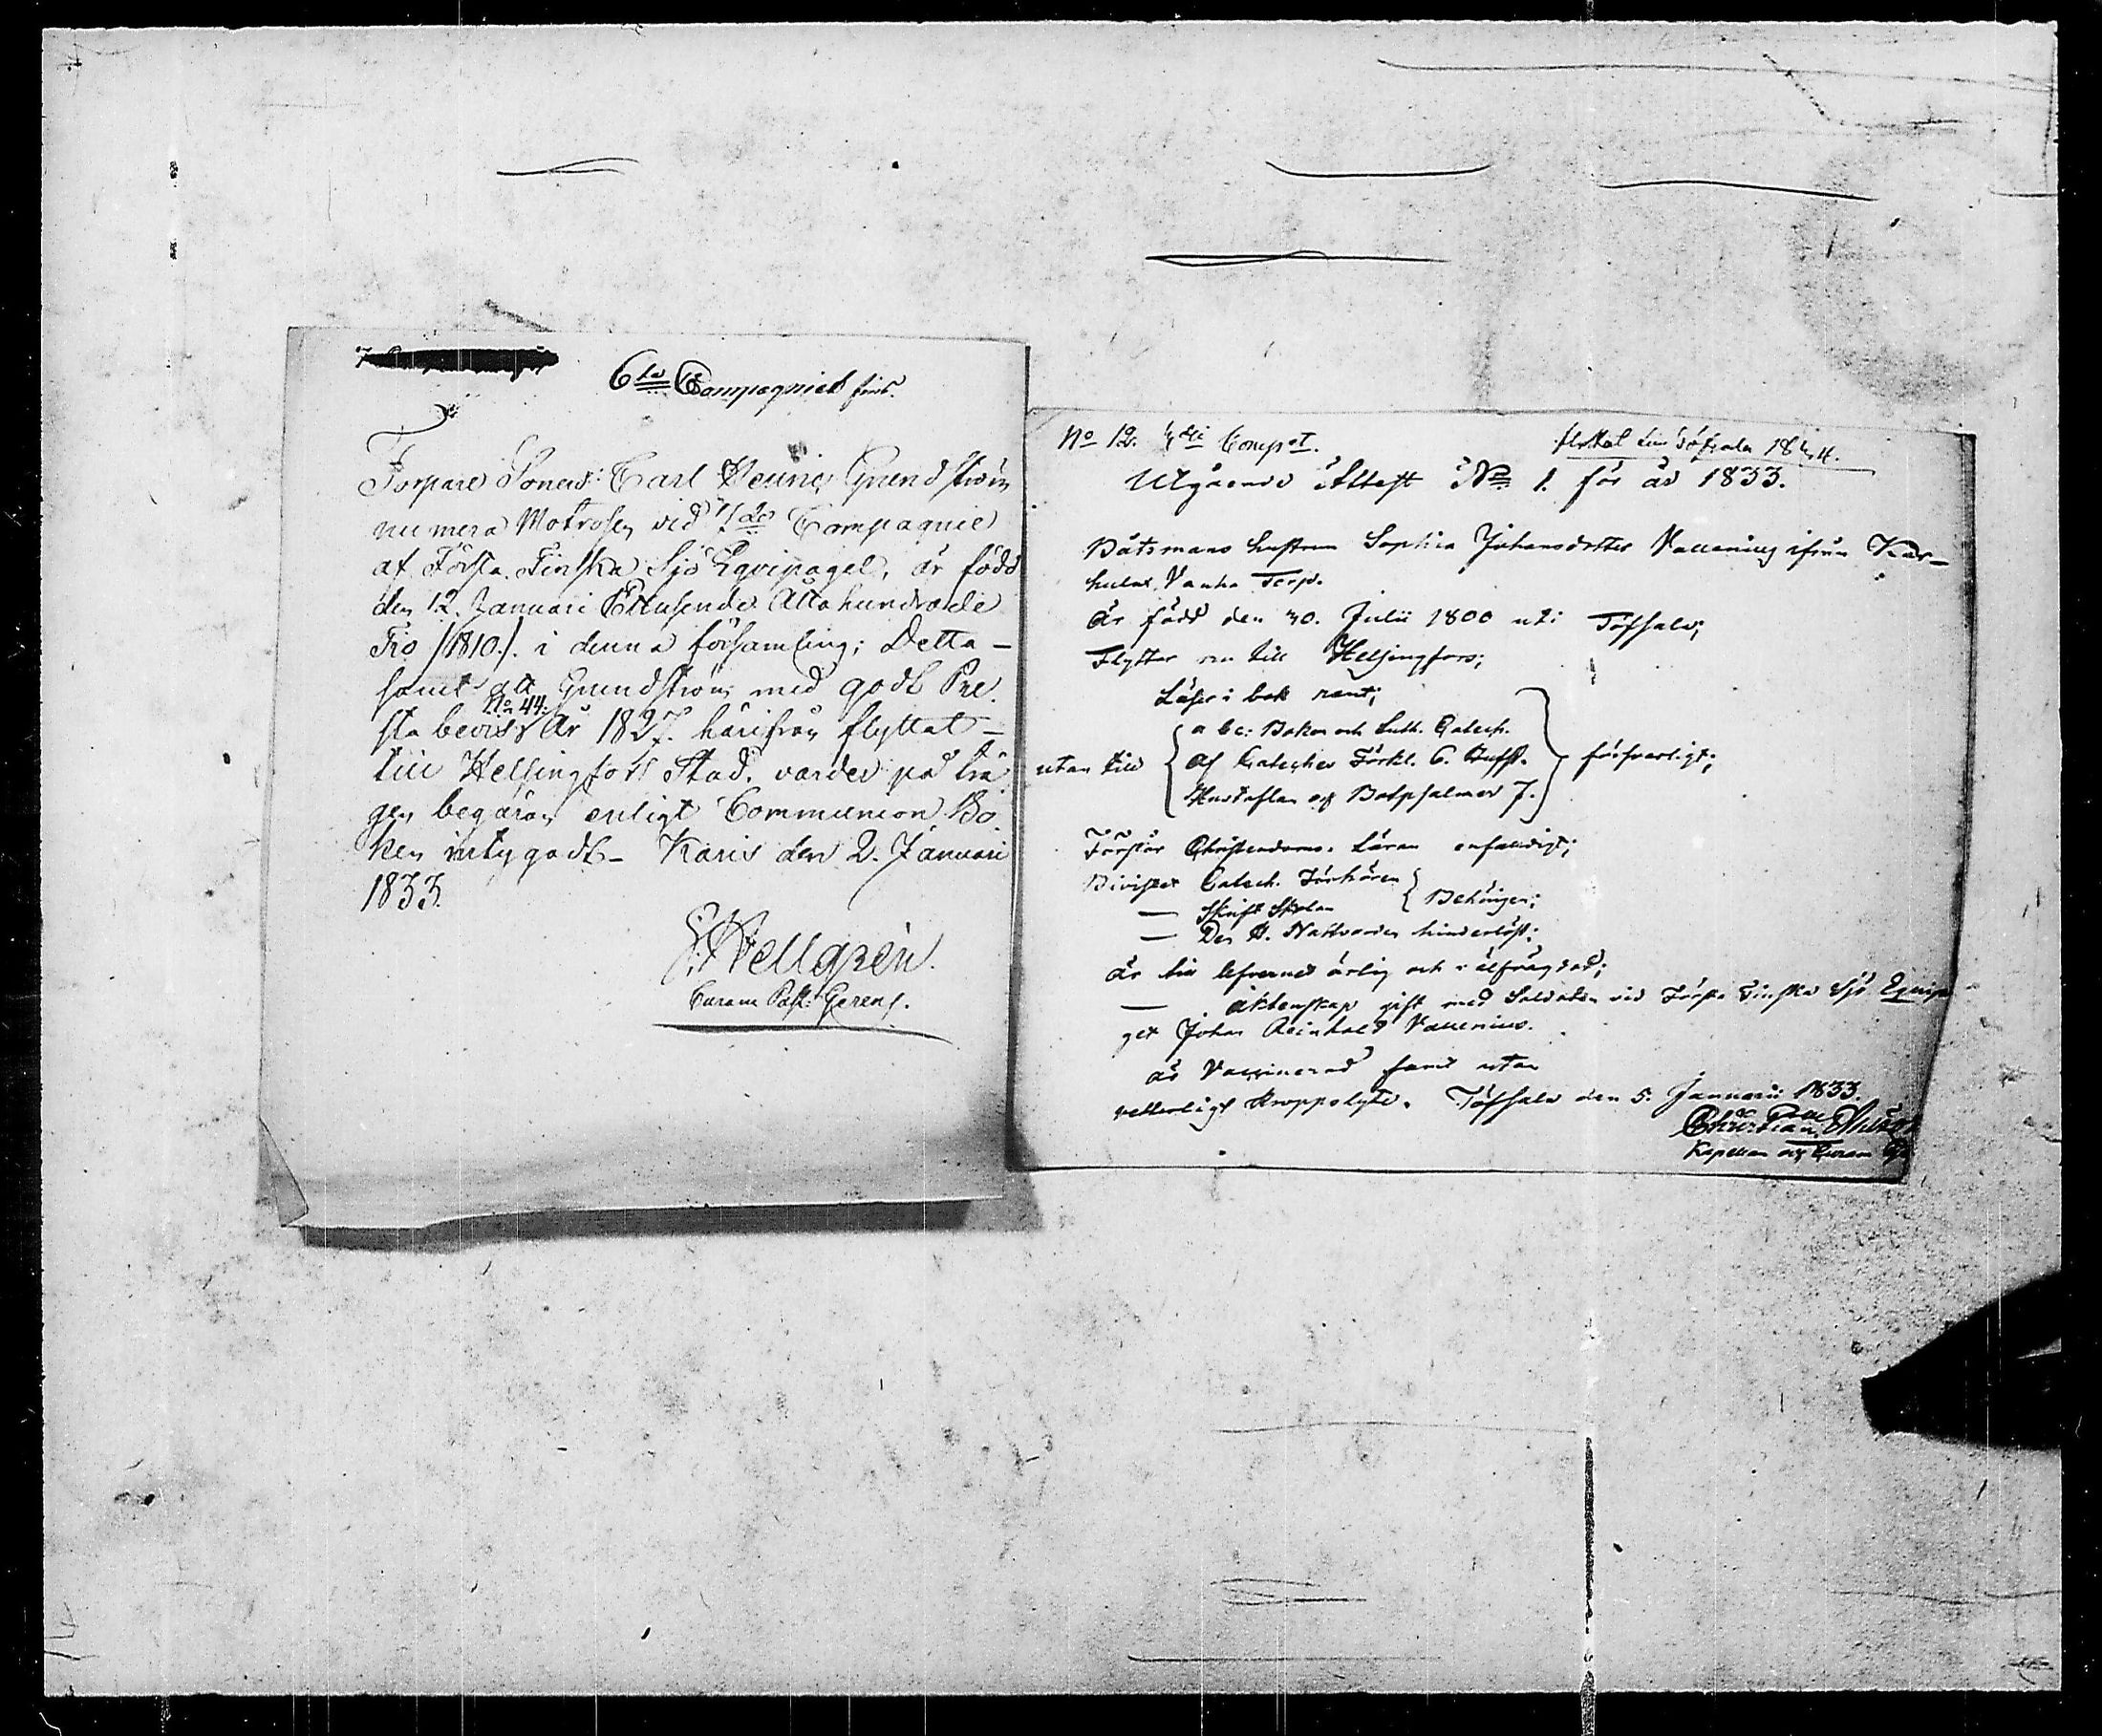 6te Compagniet
Torpare Sonen: Carl Henric Grundström
numera Matrosen vid Compagnie
af Första Finska Sjö Eqvipaget, är född
den 12. Januari Ettusende Åttahundrade
Tio /1810./. i denna församling; Detta –
samt att Grundström med godt Pre
No 44:
sta bevis År 1827. härifrån flyttat –
till Helsingfors Stad, varder på trä
gen begäran enligt Communion Bo
ken intygadt – Karis den 2. Januari
1833.
Hellgrén.
Curam Past: Gerens.
No 12. Comp.
Utgående Attest No 1. för år 1833.
Båtsmans hustrun Sophia Johansdotter ifrån Kar–
Vanha Torp.
är född den 30. Julii 1800 uti Töfsala;
Flyttar nu till Helsingfors;
Läser i bok rent;
a bc: Boken och Luth. Catech.
utan till Af Catechev Förkl. 6. försvarligt;
Hustaflan och Botpsalmer 7.
Förstår Christendoms Läran enfaldigt;
Bivistat Catech. Förhören
— Skrift Skolan Behörigen;
— Den H. Nattvarden hinderlöst;
är till lefvernet ärlig och i älfrägdad;
— äktenskap gift med Soldaten vid Första Finska Sjö Equipa
get Johan Reinhold
är Vaccinerad samt utan
vetterligt kroppslyte. Töfsala den 5. Januarii 1833.
Christian
Kapellan och Curam